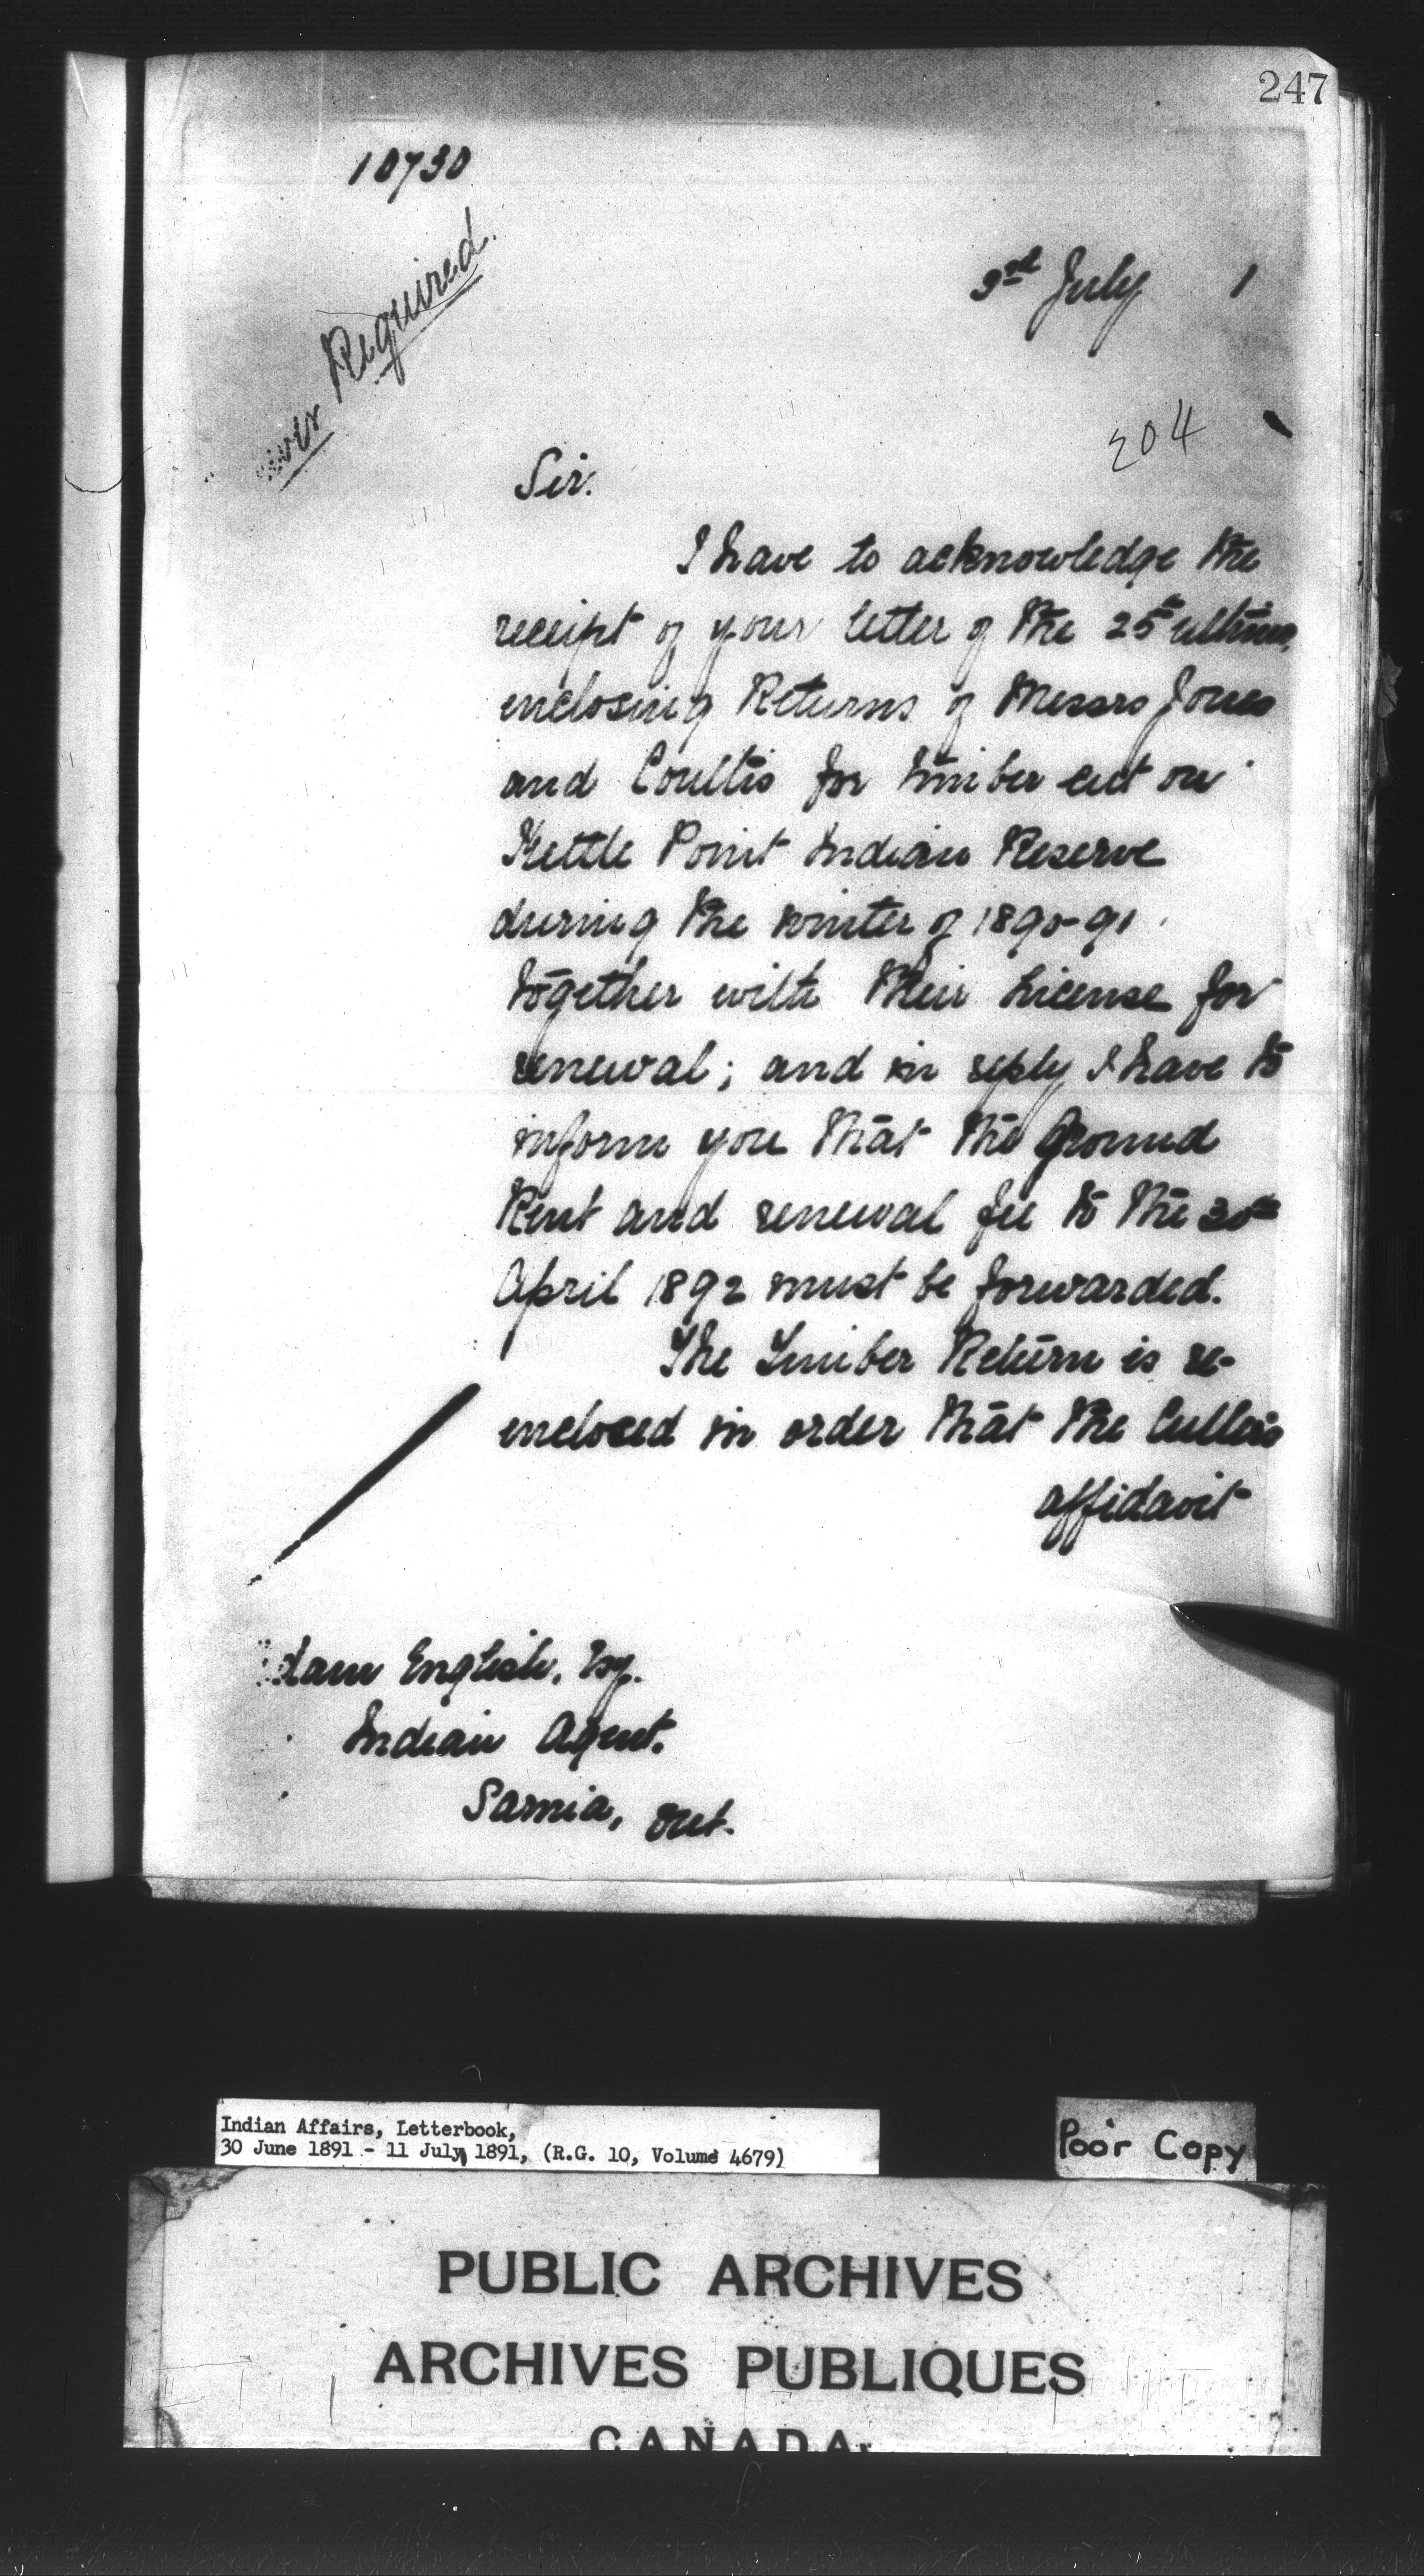 247
10730
Required.
3rd July 1
204
Sir.
I have to acknowledge the
receipt of your letter of the 25th ultimo,
enclosing Returns of Messrs Jones
and Coultis for timber cut on
Kettle Point Indian Reserve
during the winter of 1890-91
together with their License for
renewal; and in reply I have to
inform you that the Ground
Rent and renewal fee to the 30th
April 1892 must be forwarded.
The Timber Return is re-
enclosed in order that the Culler's
affidavit
dam English, Esq.
Indian Agent.
Sarnia, Ont.
Indian Affairs, Letterbook,
30 June 1891 - 11 July, 1891, (R.G. 10, Volume 4679)
Poor Copy
PUBLIC ARCHIVES
ARCHIVES PUBLIQUES
CANADA